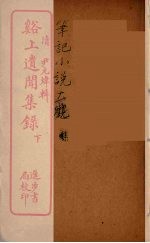 筆記小說大觀
清 尹元煒輯
谿上遺聞集錄 下
進步書局校印